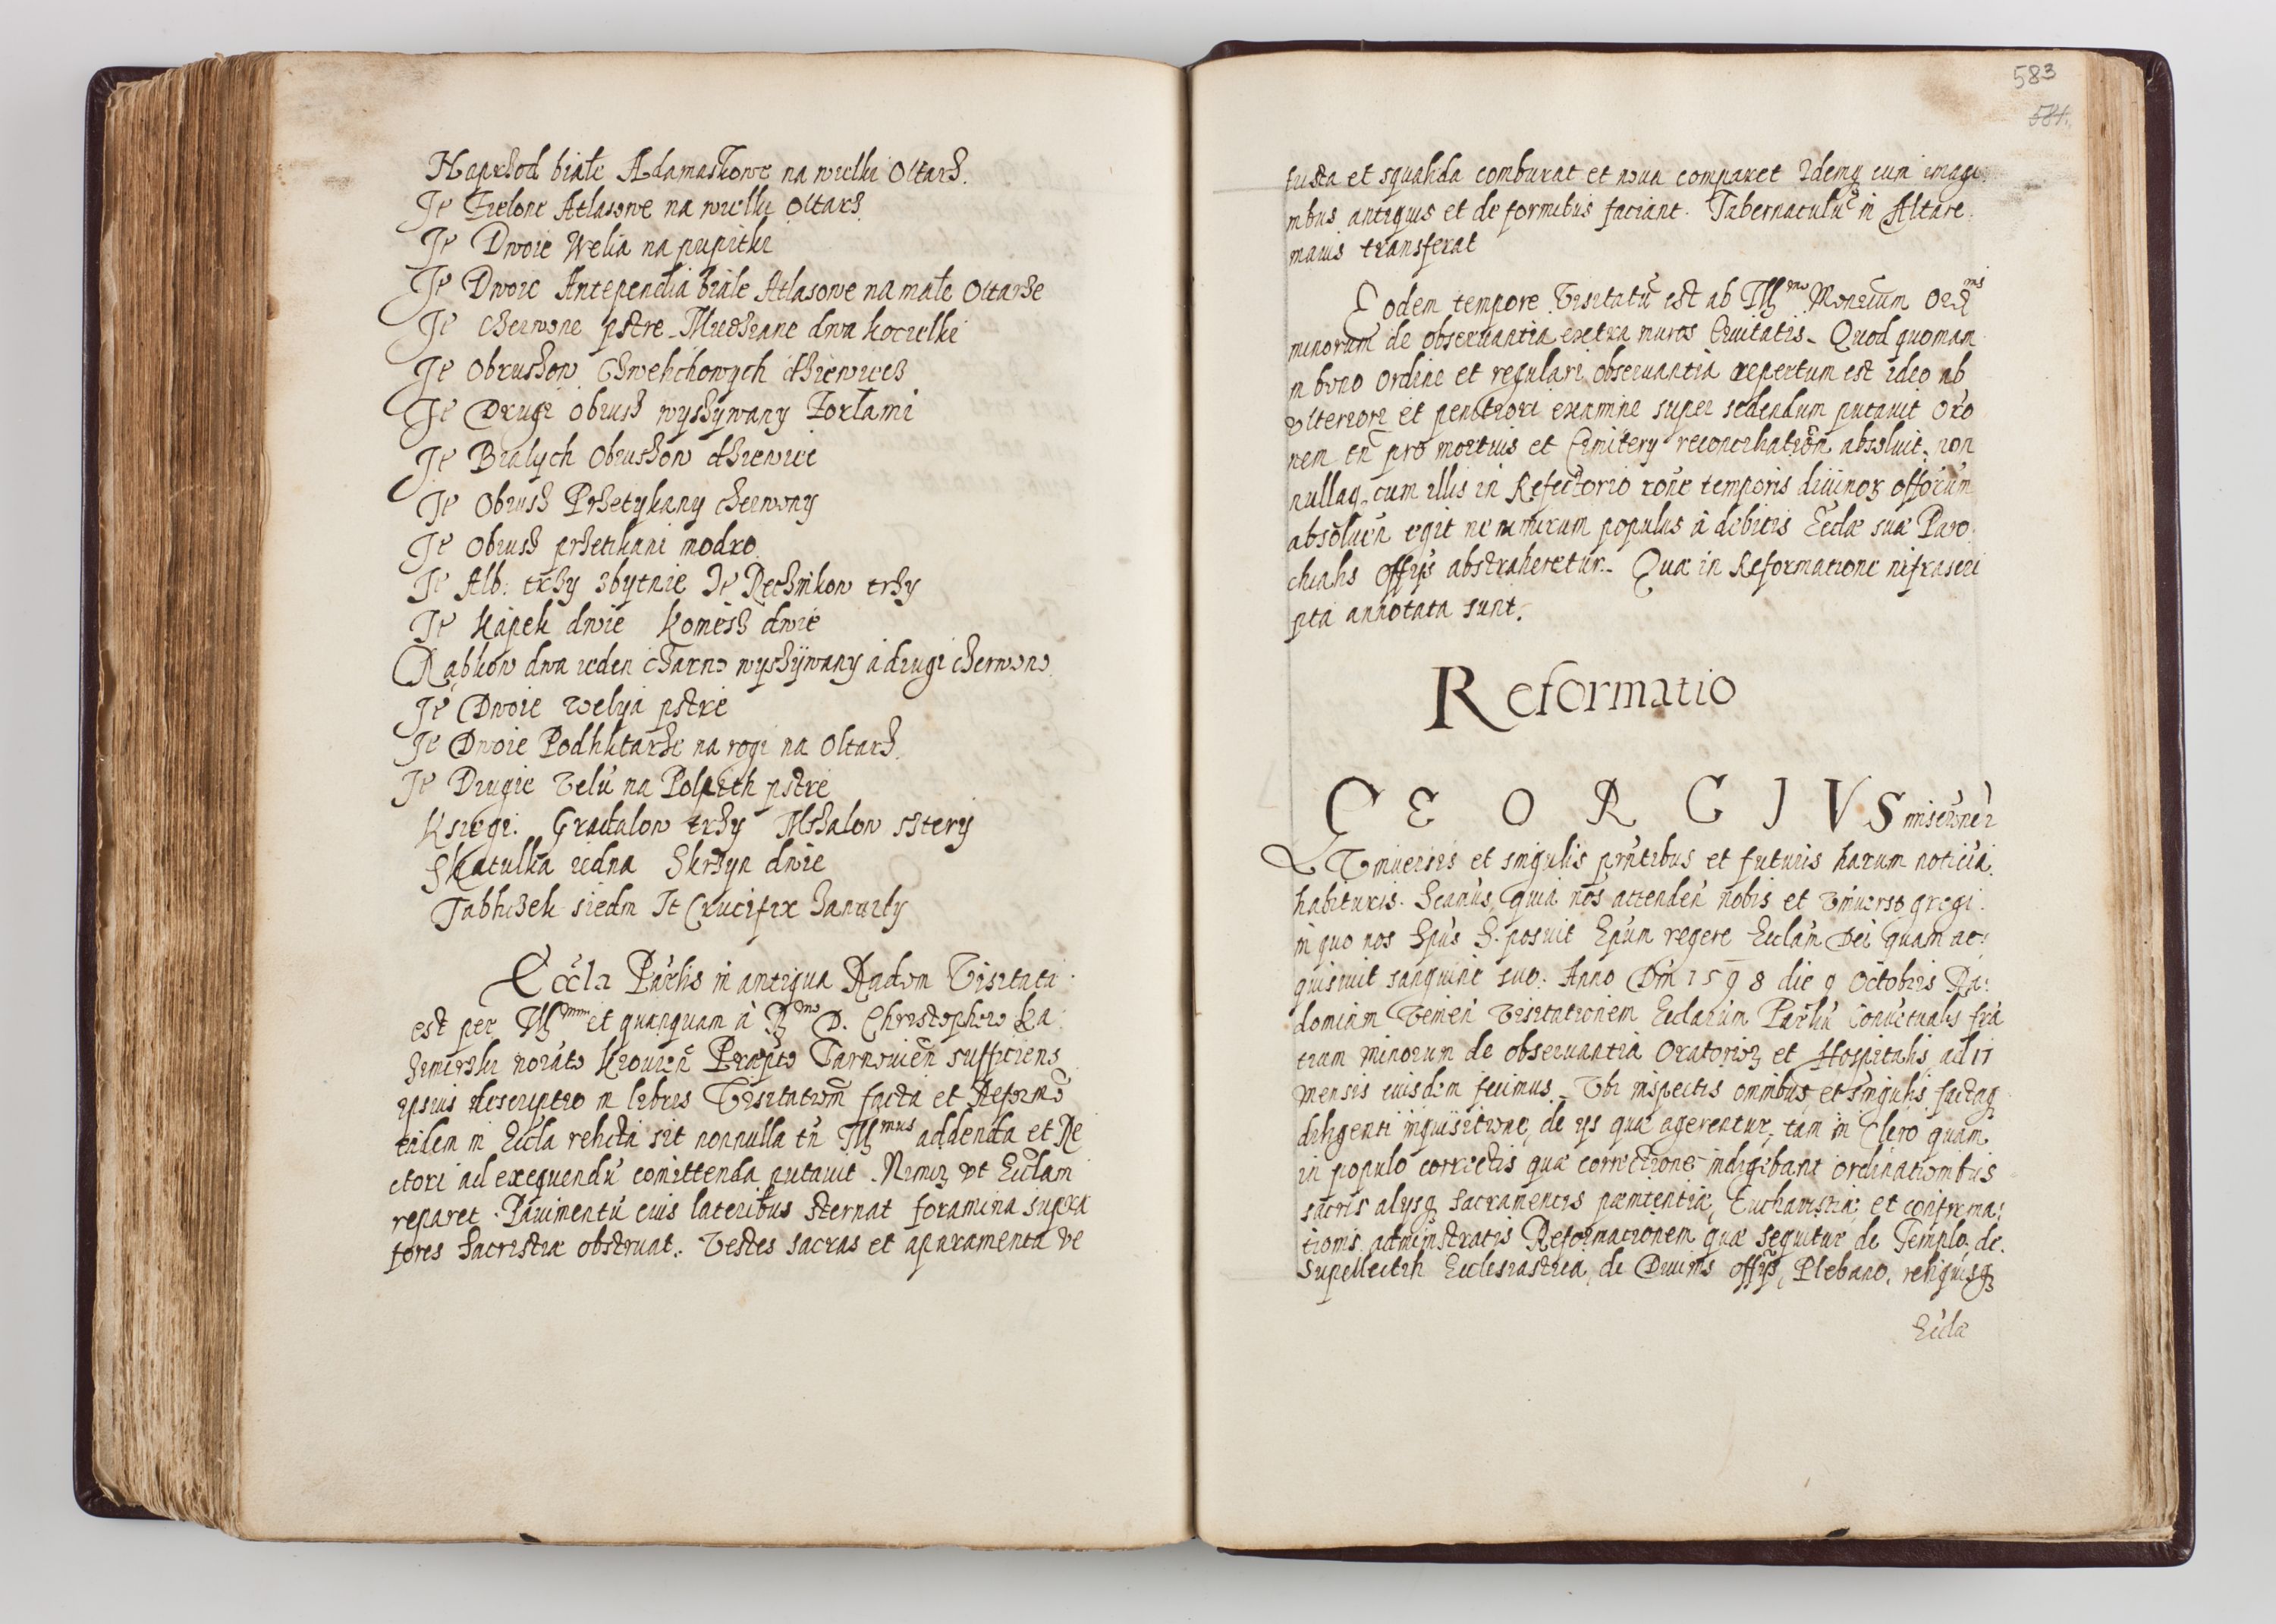 Naprzod białe Adamaskowe na wielki Oltarz.
It Zielone Atlasowe na wielki Oltarz
It Dwoie Welia na pupitki
It Dwoie Antependia białe Atlasowe na małe Oltarze
It Czerwone pstre Muchiane dwa kocielki
It Obruszow Cwelichowych dziewiecz
It Drugi obrusz wyszywany Forłami
It Bialych Obruszow dziewiec
It Obrusz Przetykany czerwony
It Obrusz przetikani modro
It Alb: trzy zbytnie It Recznikow trzy
It Kapek dwie Komesz dwie
Rąbkow dwa ieden czarno wyszÿwany a drugi czerwono.
It Dwoie welya pstre
It Dwoie Podliktarze na rogi na Oltarz.
It Drugie Velū na Polpith pstre
Ksiegi. Gradalow trzy Mszalow sztery
Skatulka iedna Skrzyn dwie
Tabliczek siedm It Crucifix
Eccla Parlis in antiqua Radom Visitata
est per Illmum et quanquam à Rmo D. Christophoro Ka
zimirski norato Kiouien Præpto Tarnouien sufficiens
ipsius descriptio in libris Visitationum facta et Reformo
eidem in Eccla relicta sit nonnulla tn Illmus addenda et Re
ctori ad exequendū comittenda putauit. Nimirz vt Ecclam
reparet. Pauimentū eius lateribus sternat foramina supra
fores Sacristiæ obstruat. Vestes sacras et aparamenta ve
583
581.
tusta et squalida comburat et noua comparet Idemq cum imagi
nibus antiquis et deformibus faciant. Tabernaculū in Altare
maius transferat
Eodem tempore Visitatū est ab Illmo Monrium Ordis
minorum de obseruantia extra muros Ciuitatis. Quod quoniam
in bono Ordine et regulari obseruantia repertum est ideo ab
vlteriori et penitiori examine super sedendum putauit Oro
nem tn pro mortuis et Cimitery reconciliation absoluit. non
nullaq cum illis in Refectorio rone temporis diuinorz offorum
absoluen egit ne nimirum populus à debitis Ecclæ suæ Paro
chialis Offys abstraheretur. Quæ in Reformatione infrascri
pta annotata sunt.
Reformatio
GEORGIVS miserōne
Vniuersis et singulis prntibus et futuris harum noticia
habituris. Scimus quia nos attenden nobis et vniuerso gregi
in quo nos Spūs S. posuit Epum regere Ecclam Dei quam ac:
quisiuit sanguine suo. Anno Dm̄ 1598 die 9 Octobris Ra:
domiam Venien Visitationem Ecclarum Parliū Conuctualis fra
trum minorum de obseruantia Oratoriorz et Hospitalis ad 11
mensis eiusdem fecimus. Vbi inspectis omnibus et singulis factaq
diligenti inquisitione, de ys quæ agerentur, tam in Clero quam
in populo correctis quæ correctione indigebant ordinationibus
sacris alysq Sacramentis pænitentiæ, Eucharistiæ, et confirma:
tionis administratis Reformationem quæ sequitur de Templo, de
Supellectili Ecclesiastica, de Diuinis offys, Plebano, reliquisq
Ecclæ